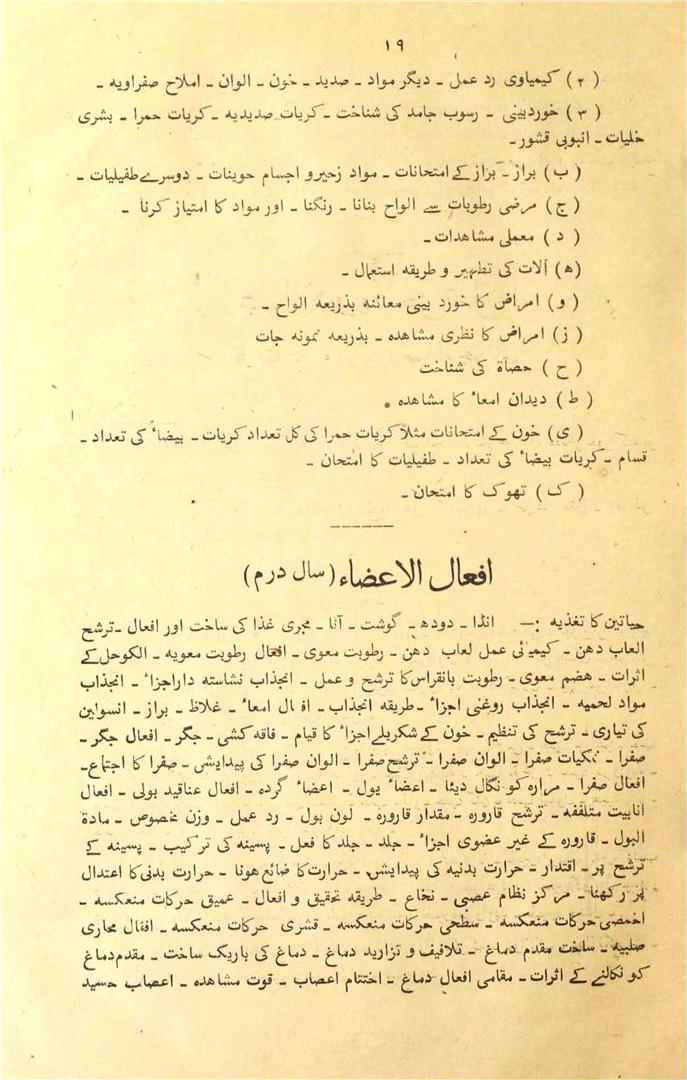 ۱۹
(۲) کیمیاوی رد عمل ۔ دیگر مواد ۔ صدید ۔ خون ۔ الوان ۔ املاح صفراویه ۔
(۳) خوردبینی ۔ رسوب جامد کی شناخت ۔ کریات صدیدیه ۔ کریات حمرا ۔ بشری
خلیات ۔ انبوبی قشور ۔
(ب) براز ۔ براز کے امتحانات ۔ مواد زحیر و اجسام حوینات ۔ دوسرے طفیلیات ۔
(ج) مرضی رطوبات سے الواح بنانا ۔ رنگنا ۔ اور مواد کا امتیاز کرنا ۔
(د) معملی مشاهدات ۔
(ه) آلات کی تطهیر و طریقه استعمال ۔
(و) امراض کا خورد بینی معائنه بذریعه الواح ۔
(ز) امراض کا نظری مشاهده ۔ بذریعه نمونه جات
(ح) حصاة کی شناخت
(ط) دیدان امعاء کا مشاهده ۔
(ی) خون کے امتحانات مثلاً کریات حمرا کی کل تعداد کریات ۔ بیضاء کی تعداد ۔
قسام ۔ کریات بیضاء کی تعداد ۔ طفیلیات کا امتحان ۔
(ک) تھوک کا امتحان ۔
افعال الاعضاء (سال درم)
حیاتین کا تغذیه :— انڈا ۔ دودھ ۔ گوشت ۔ آٹا ۔ مجری غذا کی ساخت اور افعال ۔ ترشح
العاب دهن ۔ کیمیائی عمل لعاب دهن ۔ رطوبت معوی ۔ افعال رطوبت معویه ۔ الکوحل کے
اثرات ۔ هضم معوی ۔ رطوبت بانقراس کا ترشح و عمل ۔ انجذاب نشاسته دار اجزاء ۔ انجذاب
مواد لحمیه ۔ انجذاب روغنی اجزاء ۔ طریقه انجذاب ۔ افعال امعاء ۔ غلاظ ۔ براز ۔ انسولین
کی تیاری ۔ ترشح کی تنظیم ۔ خون کے شکریلے اجزاء کا قیام ۔ فاقه کشی ۔ جگر ۔ افعال جگر ۔
صفرا ۔ نمکیات صفرا ۔ الوان صفرا ۔ ترشح صفرا ۔ الوان صفرا کی پیدایش ۔ صفرا کا اجتماع ۔
افعال صفرا ۔ مراره کو نکال دینا ۔ اعضاء بول ۔ اعضاء گرده ۔ افعال عناقید بولی ۔ افعال
انابیت متلففه ۔ ترشح قاروره ۔ مقدار قاروره ۔ لون بول ۔ رد عمل ۔ وزن مخصوص ۔ مادة
البول ۔ قاروره کے غیر عضوی اجزاء ۔ جلد ۔ جلد کا فعل ۔ پسینه کی ترکیب ۔ پسینه کے
ترشح پر ۔ اقتدار ۔ حرارت بدنیه کی پیدایش ۔ حرارت کا ضائع هونا ۔ حرارت بدنی کا اعتدال
پر رکھنا ۔ مرکز نظام عصبی ۔ نخاع ۔ طریقه تحقیق و افعال ۔ عمیق حرکات منعکسه ۔
اخمصی حرکات منعکسه ۔ سطحی حرکات منعکسه ۔ قشری حرکات منعکسه ۔ افعال مجازی
صلبیه ۔ ساخت مقدم دماغ ۔ تلافیف و تزارید دماغ ۔ دماغ کی باریک ساخت ۔ مقدم دماغ
کو نکالنے کے اثرات ۔ مقامی افعال دماغ ۔ اختتام اعصاب ۔ قوت مشاهده ۔ اعصاب حسید